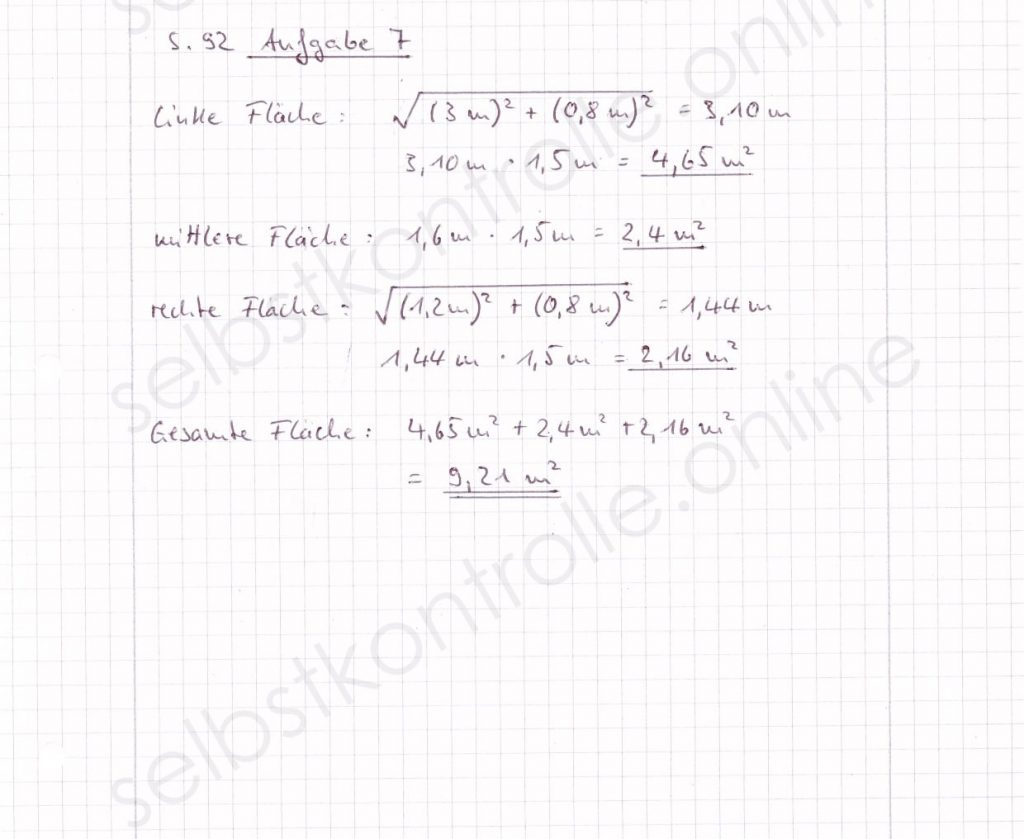 S. 92 Aufgabe 7
linke Fläche: √((3 m)² + (0,8 m)²) = 3,10 m
3,10 m · 1,5 m = 4,65 m²
mittlere Fläche: 1,6 m · 1,5 m = 2,4 m²
rechte Fläche: √((1,2 m)² + (0,8 m)²) = 1,44 m
1,44 m · 1,5 m = 2,16 m²
Gesamte Fläche: 4,65 m² + 2,4 m² + 2,16 m²
= 9,21 m²
selbstkontrolle.online
selbstkontrolle.online